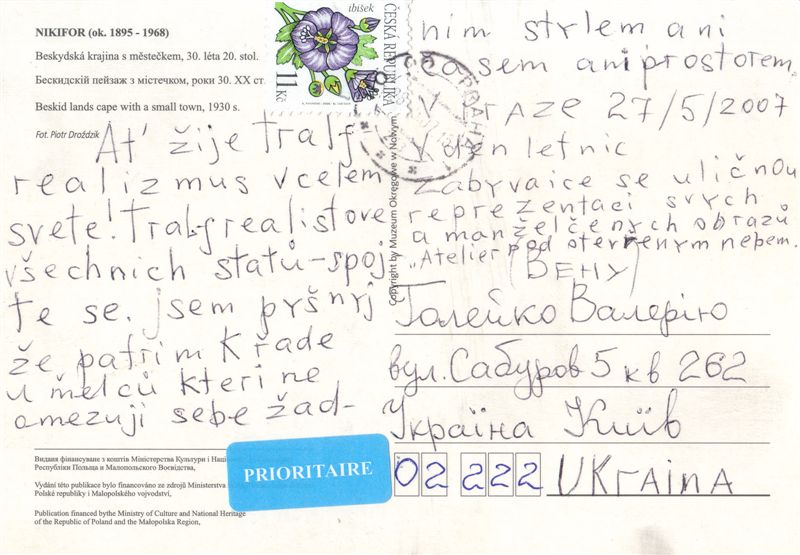 NIKIFOR (ok. 1895 - 1968)
Beskydská krajina s městečkem, 30. léta 20. stol.
Бескидскій пейзаж з містечком, роки 30. XX ст.
Beskid lands cape with a small town, 1930 s.
Fot. Piotr Droździk
ibišek
ČESKÁ REPUBLIKA
11 Kč
Ať žije tralf
realizmus v celem
svete! Tralfrealistove
všechnich statů-spoj
te se. jsem pyšnyj
že patřim K řade
umělců kteri ne
omezuji sebe žad-
nim stylem ani
časem ani prostorem.
V Praze 27/5/2007
V den letnic
zabyvaice se uličnou
reprezentaci svych
a manželčenych obrazů
"Atelier pod otevřenym nebem.
(ВЕНУ)
Copyright by Muzeum Okręgowe w Nowym
Галейко Валерію
вул. Сабуров 5 кв 262
Україна Київ
02222 UKraina
PRIORITAIRE
Видання фінансуване з коштів Міністерства Культури і Наці
Републіки Польща и Малопольского Воєвідства,
Vydání této publikace bylo financováno ze zdrojů Ministerstva
Polské republiky i Malopolského vojvodství,
Publication financed bythe Ministry of Culture and National Heritage
of the Republic of Poland and the Małopolska Region,